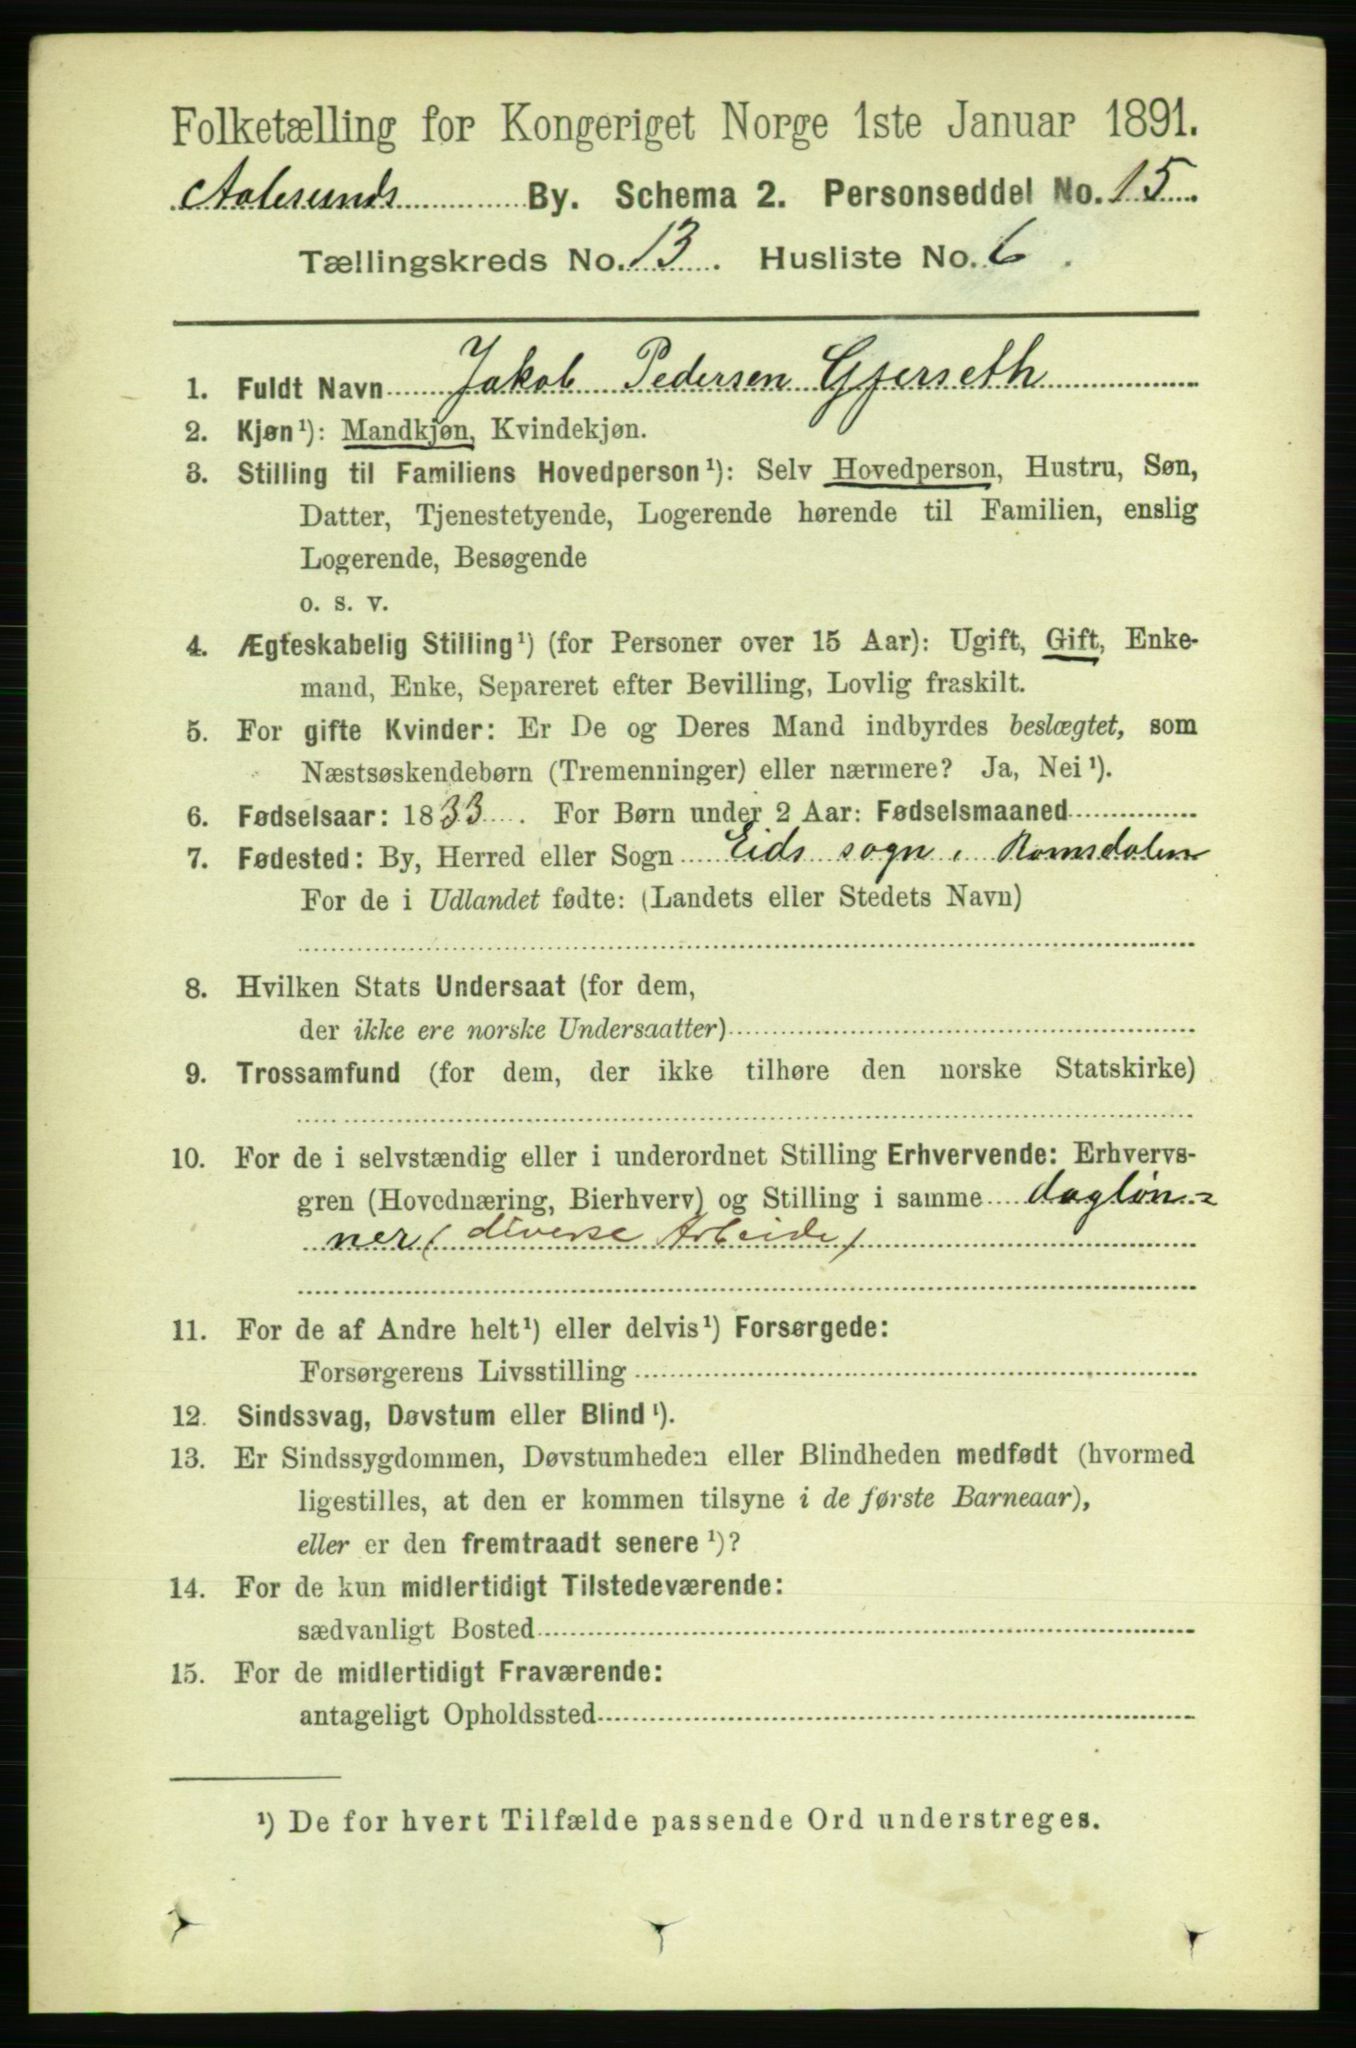 Folketælling for Kongeriget Norge 1ste Januar 1891.
Aalesunds By. Schema 2. Personseddel No. 15.
Tællingskreds No. 13. Husliste No. 6.
1. Fuldt Navn Jakob Pedersen Gjerseth
2. Kjøn¹): Mandkjøn, Kvindekjøn.
3. Stilling til Familiens Hovedperson¹): Selv Hovedperson, Hustru, Søn,
Datter, Tjenestetyende, Logerende hørende til Familien, enslig
Logerende, Besøgende
o. s. v.
4. Ægteskabelig Stilling¹) (for Personer over 15 Aar): Ugift, Gift, Enke-
mand, Enke, Separeret efter Bevilling, Lovlig fraskilt.
5. For gifte Kvinder: Er De og Deres Mand indbyrdes beslægtet, som
Næstsøskendebørn (Tremenninger) eller nærmere? Ja, Nei¹).
6. Fødselsaar: 1833. For Børn under 2 Aar: Fødselsmaaned
7. Fødested: By, Herred eller Sogn Eids sogn i Romsdalen
For de i Udlandet fødte: (Landets eller Stedets Navn)
8. Hvilken Stats Undersaat (for dem,
der ikke ere norske Undersaatter)
9. Trossamfund (for dem, der ikke tilhøre den norske Statskirke)
10. For de i selvstændig eller i underordnet Stilling Erhvervende: Erhvervs-
gren (Hovednæring, Bierhverv) og Stilling i samme dagløn=
ner (diverse Arbeide)
11. For de af Andre helt¹) eller delvis¹) Forsørgede:
Forsørgerens Livsstilling
12. Sindssvag, Døvstum eller Blind¹).
13. Er Sindssygdommen, Døvstumheden eller Blindheden medfødt (hvormed
ligestilles, at den er kommen tilsyne i de første Barneaar),
eller er den fremtraadt senere¹)?
14. For de kun midlertidigt Tilstedeværende:
sædvanligt Bosted
15. For de midlertidigt Fraværende:
antageligt Opholdssted
¹) De for hvert Tilfælde passende Ord understreges.